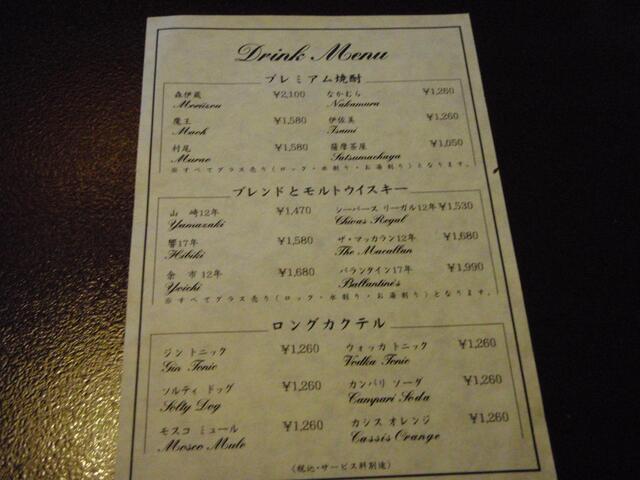 Drink Menu
プレミアム焼酎
森伊蔵 ¥2,100 なかむら ¥1,260
Moriizou Nakamura
魔王 ¥1,580 伊佐美 ¥1,260
Maoh Isami
村尾 ¥1,580 薩摩茶屋 ¥1,050
Murao Satsumachaya
※すべてグラス売り(ロック・水割り・お湯割り)となります。
ブレンドとモルトウイスキー
山崎12年 ¥1,470 シーバース リーガル12年 ¥1,530
Yamazaki Chivas Regal
響17年 ¥1,580 ザ・マッカラン12年 ¥1,680
Hibiki The Macallan
余市12年 ¥1,680 バランタイン17年 ¥1,990
Yoichi Ballantine's
※すべてグラス売り(ロック・水割り・お湯割り)となります。
ロングカクテル
ジン トニック ¥1,260 ウォッカ トニック ¥1,260
Gin Tonic Vodka Tonic
ソルティ ドッグ ¥1,260 カンパリ ソーダ ¥1,260
Solty Dog Campari Soda
モスコ ミュール ¥1,260 カシス オレンジ ¥1,260
Mosco Mule Cassis Orange
(税込・サービス料別途)